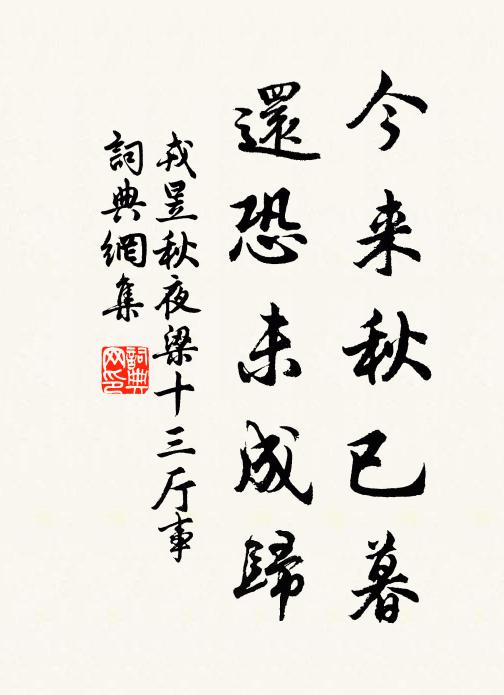 今来秋已暮
還恐未成歸
戎昱秋夜梁十三厅事
詞典網集
詞典网印